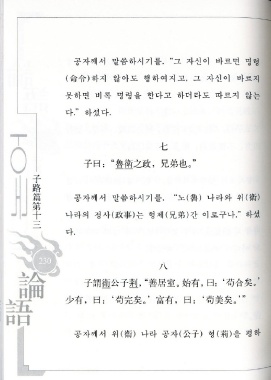 공자께서 말씀하시기를, “그 자신이 바르면 명령
(命令)하지 않아도 행하여지고, 그 자신이 바르지
못하면 비록 명령을 한다고 하더라도 따르지 않는
다.” 하셨다.
七
子曰: “魯衛之政, 兄弟也。”
공자께서 말씀하시기를, “노(魯) 나라와 위(衛)
나라의 정사(政事)는 형제(兄弟)간 이로구나.” 하셨
다.
八
子謂衛公子荆, “善居室。始有, 曰; ‘苟合矣。’
少有, 曰; ‘苟完矣。’ 富有, 曰; ‘苟美矣。’”
공자께서 위(衛) 나라 공자(公子) 형(荊)을 평하
子路篇第十三
230
論語